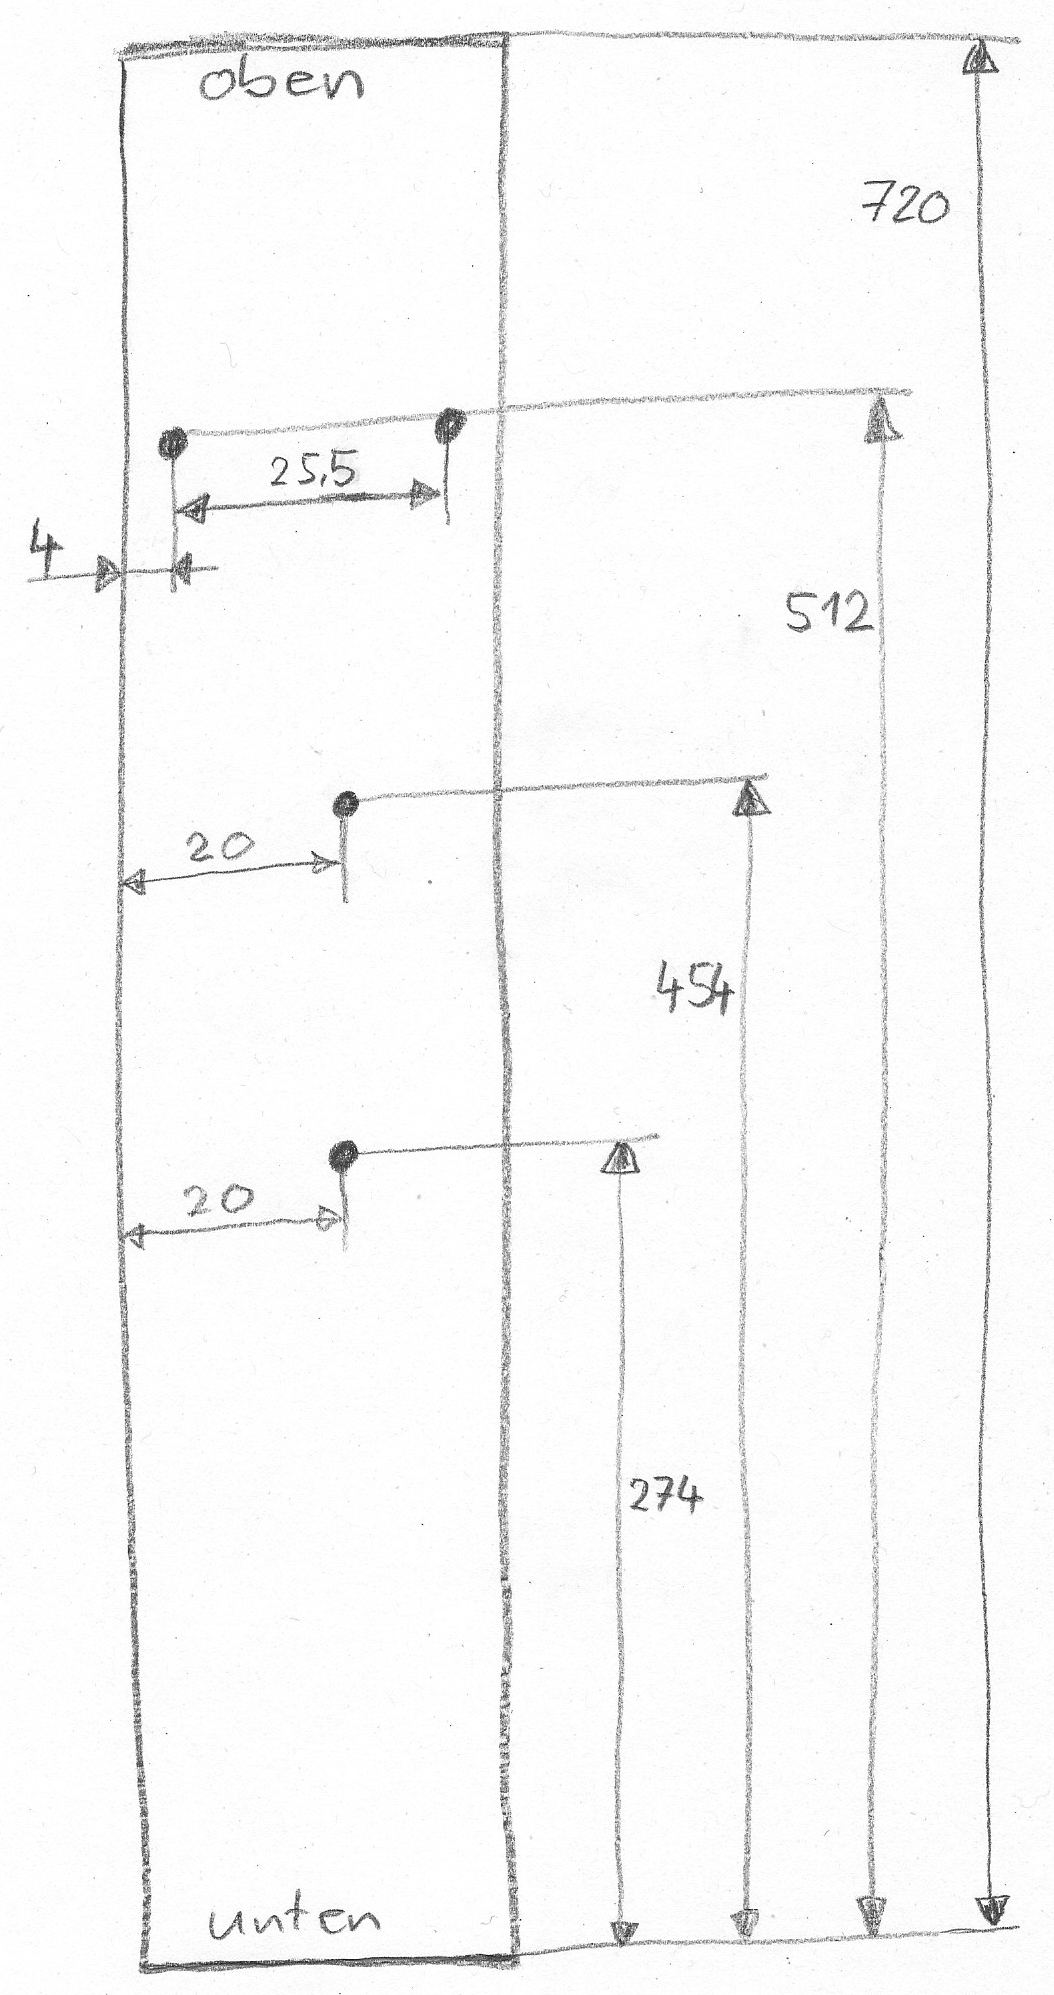 oben
720
25,5
4
512
20
454
20
274
unten